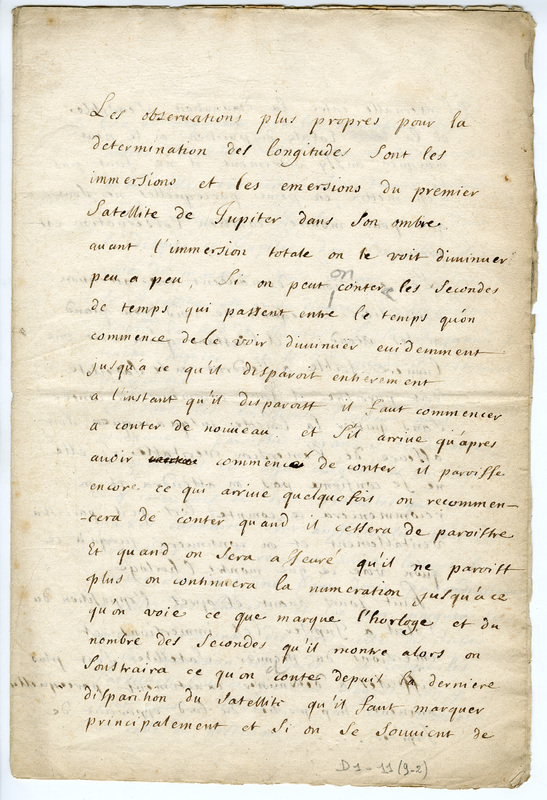 Les observations plus propres pour la
determination des longitudes sont les
immersions et les emersions du premier
Satellite de Jupiter dans son ombre.
auant l'immersion totale on le voit diminuer
peu a peu, Si on peut on conter les Secondes
de temps qui passent entre le temps qu'on
commence de le voir diminuer euidemment
jusqu'a ce qu'il disparoit entierement
a l'instant qu'il disparoist il faut commencer
a conter de nouueau. et S'il arriue qu'apres
auoir commencé de conter il paroisse
encore ce qui arriue quelquefois on recommen-
-cera de conter quand il cessera de paroistre
Et quand on Sera asseuré qu'il ne paroist
plus on continuera la numeration jusqu'a ce
qu'on voie ce que marque l'horloge et du
nombre des Secondes qu'il montre alors on
Soustraira ce qu'on conte depuit la derniere
disparition du Satellite qu'il faut marquer
principalement et Si on Se Souuient de
D1-11(9-2)